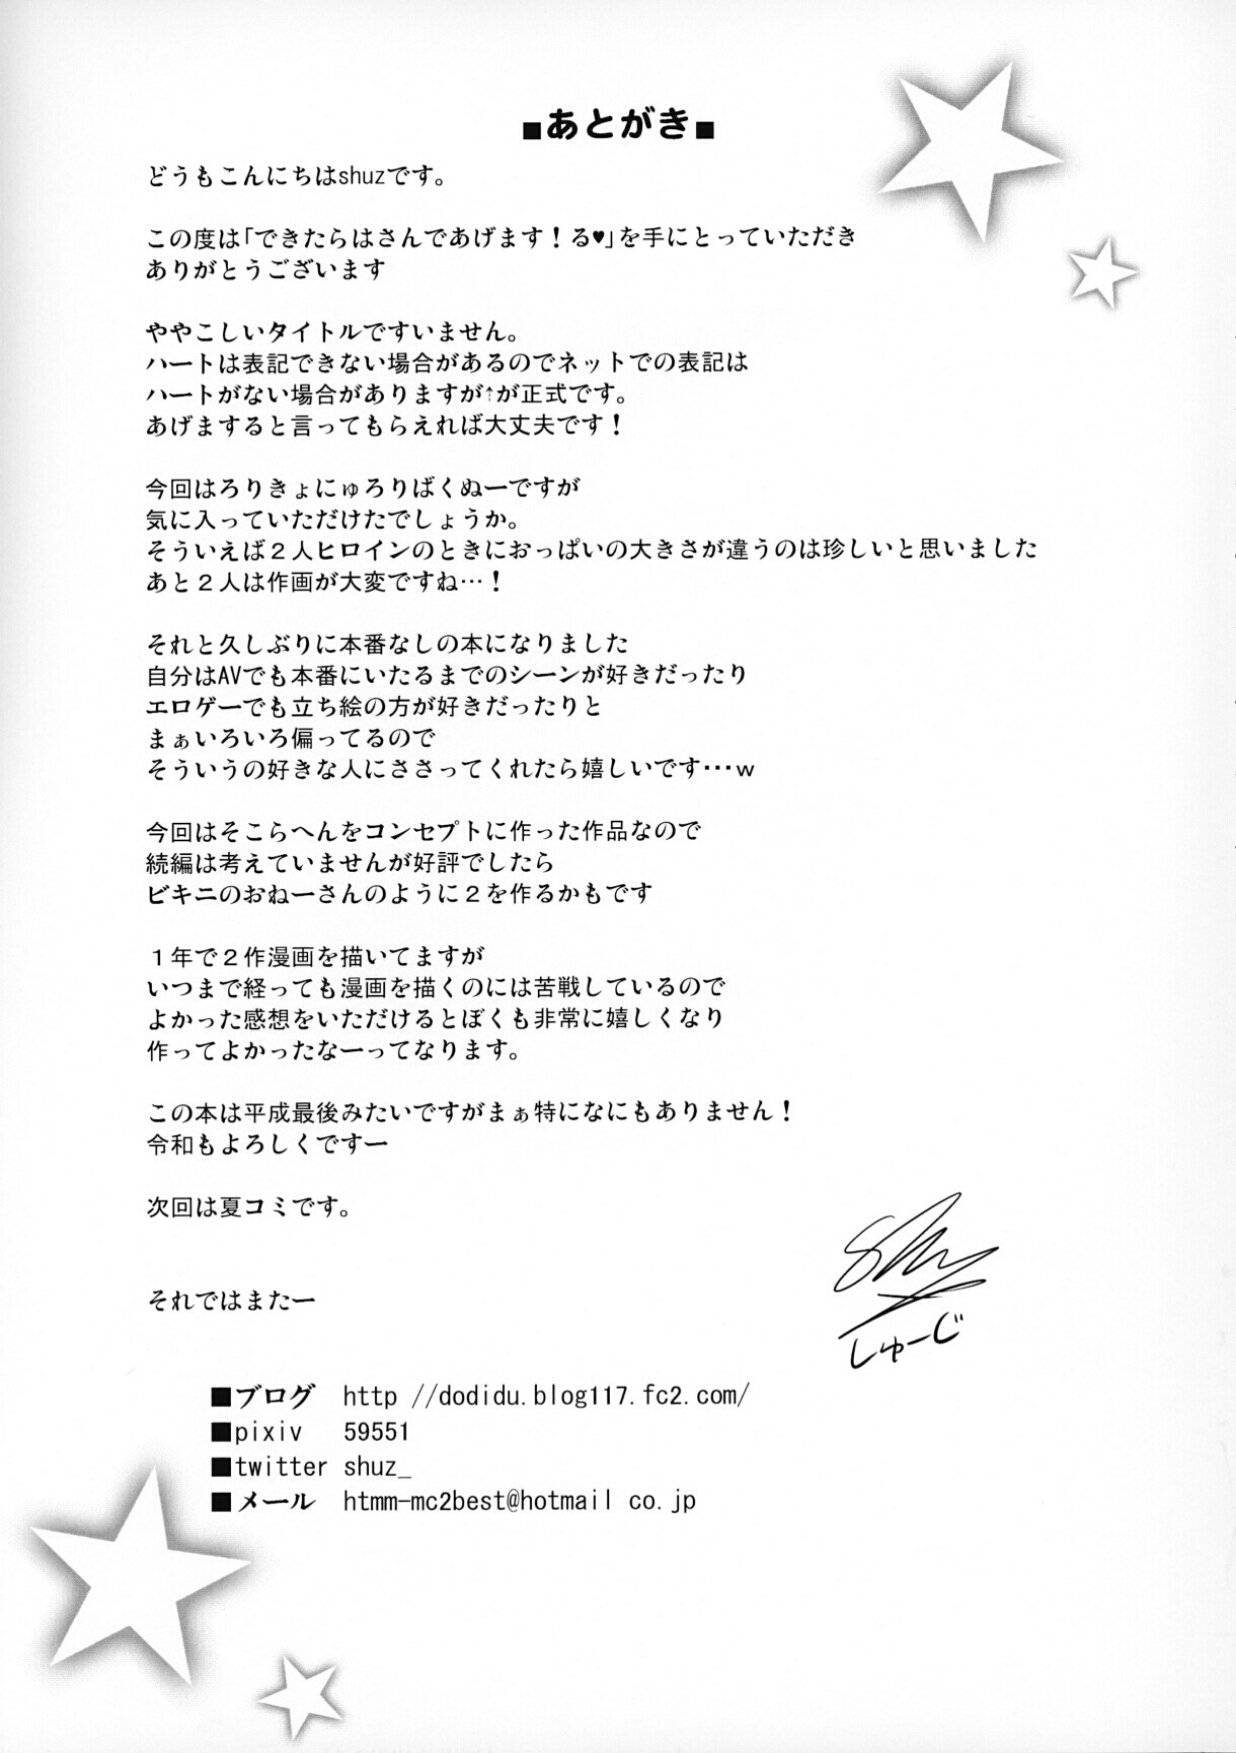 ■あとがき■
どうもこんにちはshuzです。
この度は「できたらはさんであげます！る♥」を手にとっていただき
ありがとうございます
ややこしいタイトルですいません。
ハートは表記できない場合があるのでネットでの表記は
ハートがない場合がありますが↑が正式です。
あげますると言ってもらえれば大丈夫です！
今回はろりきょにゅろりばくぬーですが
気に入っていただけたでしょうか。
そういえば２人ヒロインのときにおっぱいの大きさが違うのは珍しいと思いました
あと２人は作画が大変ですね…！
それと久しぶりに本番なしの本になりました
自分はAVでも本番にいたるまでのシーンが好きだったり
エロゲーでも立ち絵の方が好きだったりと
まぁいろいろ偏ってるので
そういうの好きな人にささってくれたら嬉しいです…ｗ
今回はそこらへんをコンセプトに作った作品なので
続編は考えていませんが好評でしたら
ビキニのおねーさんのように２を作るかもです
１年で２作漫画を描いてますが
いつまで経っても漫画を描くのには苦戦しているので
よかった感想をいただけるとぼくも非常に嬉しくなり
作ってよかったなーってなります。
この本は平成最後みたいですがまぁ特になにもありません！
令和もよろしくですー
次回は夏コミです。
それではまたー
shu
しゅーじ
■ブログ http //dodidu.blog117.fc2.com/
■pixiv 59551
■twitter shuz_
■メール htmm-mc2best@hotmail co.jp